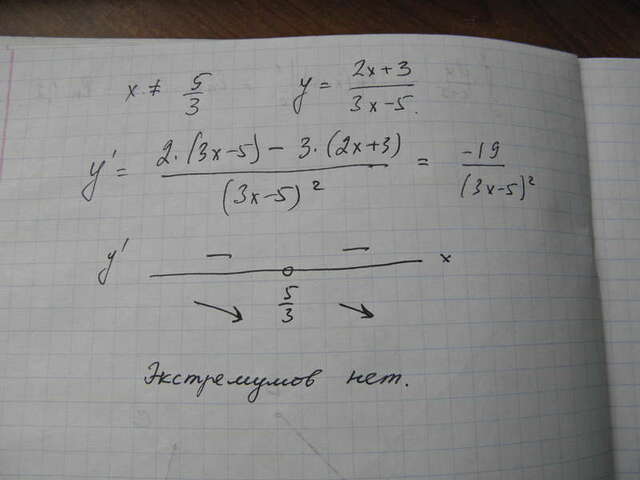 x ≠ 5/3 y = (2x+3)/(3x-5).
y' = (2·(3x-5) - 3·(2x+3))/(3x-5)² = -19/(3x-5)²
y' — — x
↘ 5/3 ↘
Экстремумов нет.